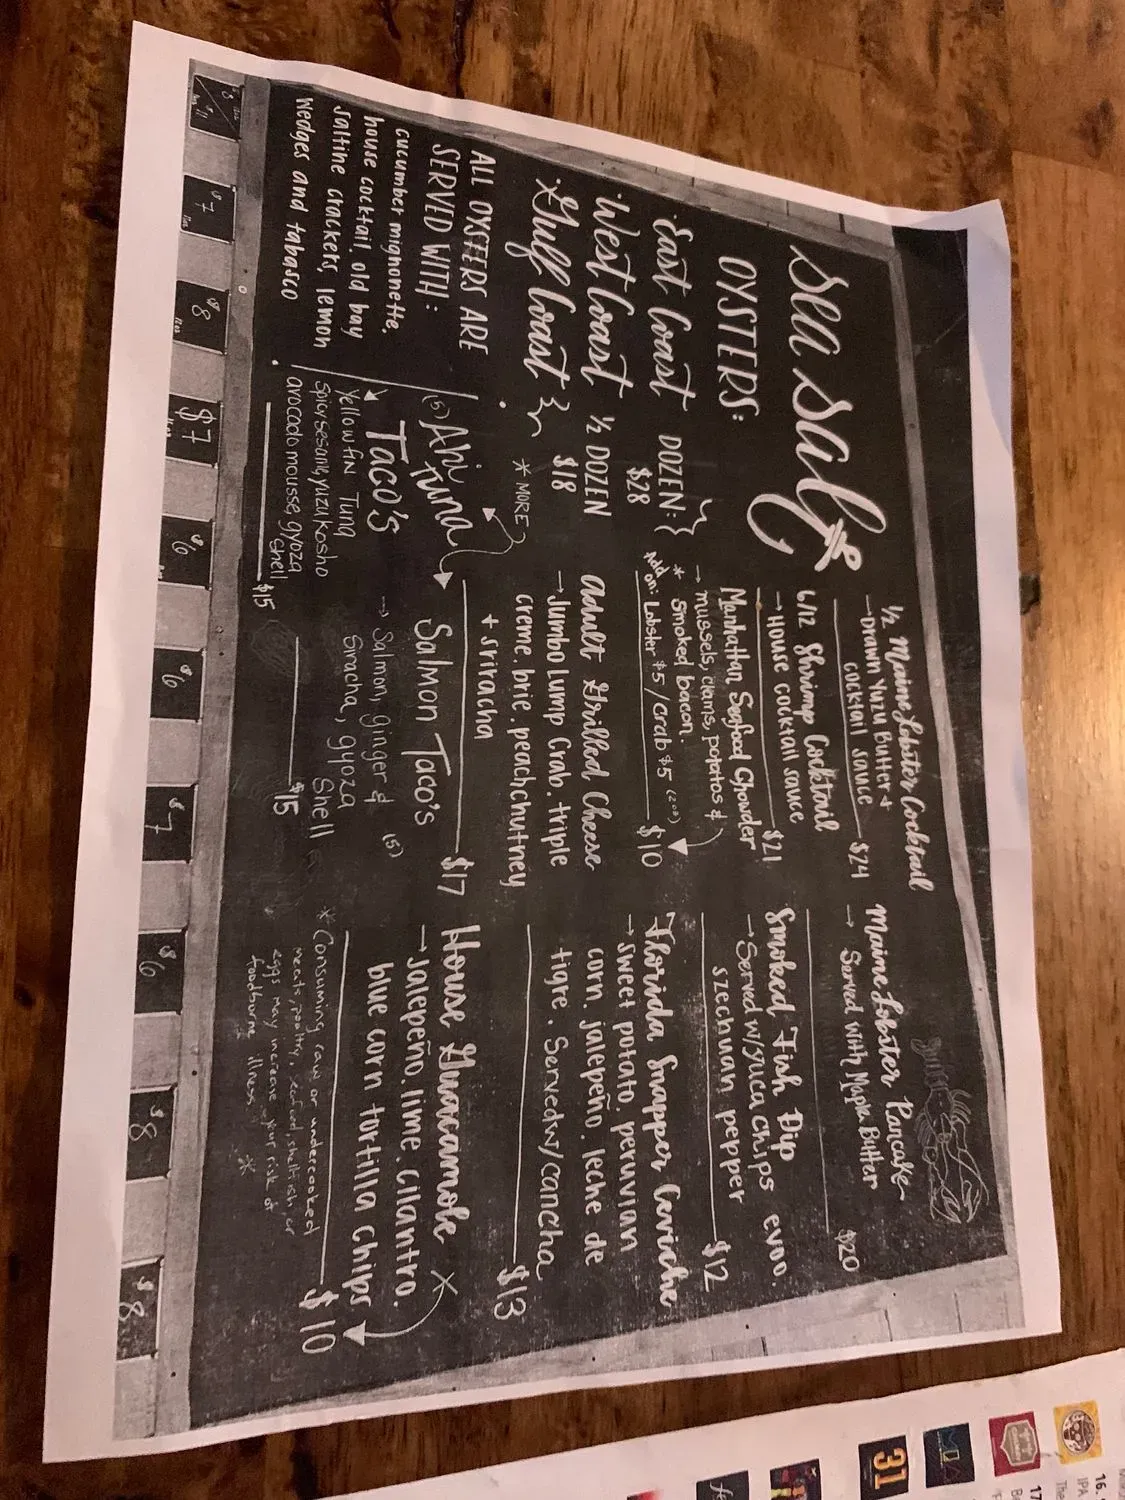 Sea Salt
OYSTERS:
·East Coast
·West Coast
·Gulf Coast
DOZEN
$28
½ DOZEN
$18
* MORE
ALL OYSTERS ARE
SERVED WITH:
cucumber mignonette,
house cocktail, old bay
saltine crackers, lemon
wedges and tabasco
(5) Ahi
Tuna
TACO'S
Yellowfin Tuna
spicy sesame, yuzu kosho
avocado mousse, gyoza
shell
$15
½ Maine Lobster Cocktail
→Drawn Yuzu Butter +
cocktail sauce
$24
6/12 Shrimp Cocktail
→ House cocktail sauce
$21
Manhattan Seafood Chowder
→ mussels, clams, potatoes &
* smoked bacon.
Add on: Lobster $5/crab $5 (2oz)
$10
Adult Grilled Cheese
→Jumbo Lump Crab, triple
creme, brie, peach chutney
+ sriracha
$17
Salmon Taco's
(5)
→ Salmon, ginger &
Siracha, gyoza
Shell
$15
Maine Lobster Pancake
→ Served with Maple Butter
$20
Smoked Fish Dip
→Served w/ yuca chips evoo,
szechuan pepper
$12
Florida Snapper Ceviche
→sweet potato, peruvian
corn, jalepeño, leche de
tigre. Served w/ cancha
$13
House Guacamole
→Jalepeño, lime, cilantro,
blue corn tortilla chips
$10
*Consuming raw or undercooked
meats, poultry, seafood, shellfish or
eggs may increase your risk of
foodborne illness *
$7
$8
$7
$6
$6
$7
$6
$8
$8
31
16.
IPA
The
17